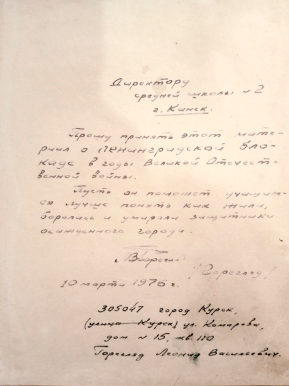 Директору
средней школы №2
г. Канск.
Прошу принять этот мате-
риал о Ленинградской бло-
каде в годы Великой Отечест-
венной войны.
Пусть он поможет учащим-
ся лучше понять как жили,
боролись и умирали защитники
осажденного города.
10 марта 1976 г.
305047 город Курск,
(улица Курск) ул. Комарова,
дом № 15, кв. 110
Леонид Васильевич.